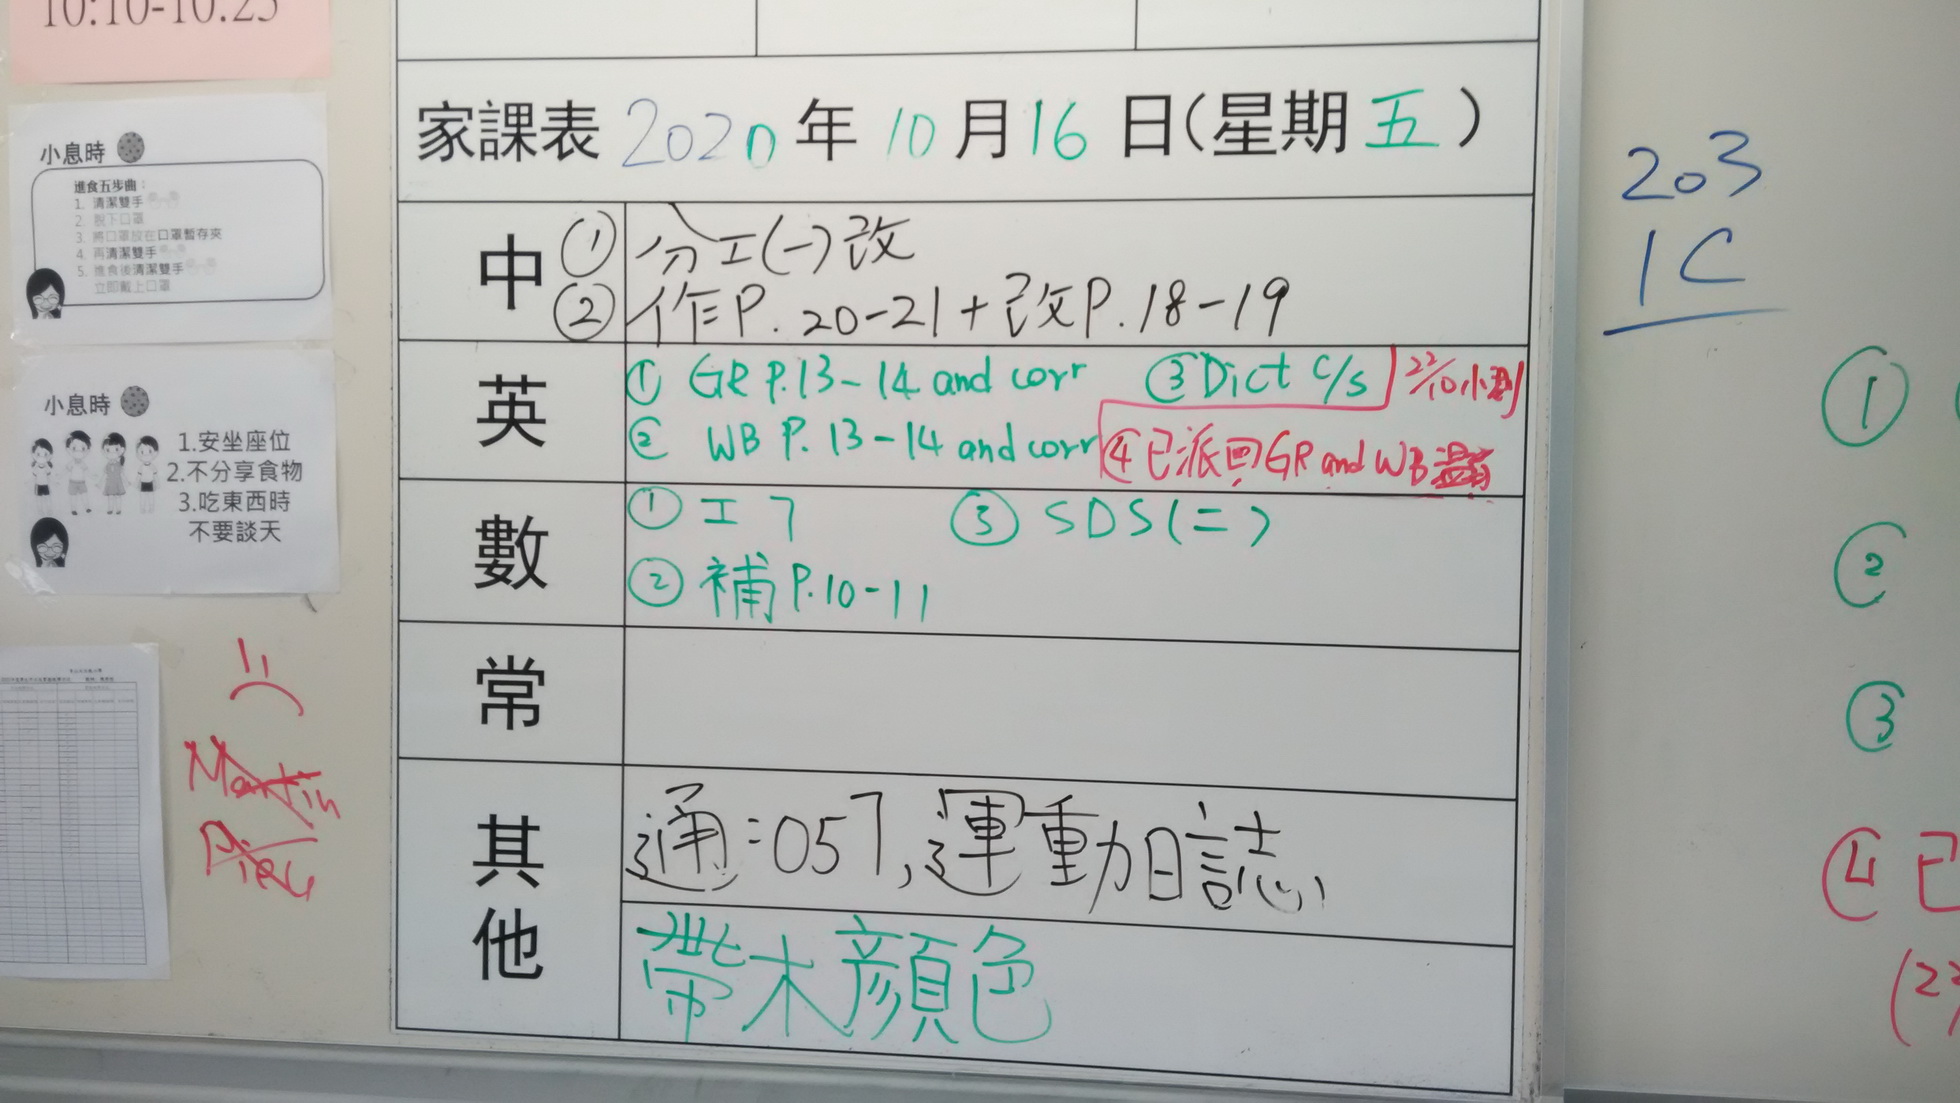 10:10-10:25
小息時
進食五步曲：
1. 清潔雙手
2. 脫下口罩
3. 將口罩放在口罩暫存夾
4. 再清潔雙手
5. 進食後清潔雙手
立即戴上口罩
小息時
1.安坐座位
2.不分享食物
3.吃東西時
不要談天
Martin
家課表 2020 年 10 月 16 日(星期 五 )
中
① 分工(一)改
② 作P. 20-21 + 改P. 18-19
英
① GR P.13-14 and corr ③ Dict c/s 22/10小測
② WB P. 13-14 and corr ④已派回GR and WB溫習
數
① 工7 ③ SDS(二)
② 補P.10-11
常
其他
通:057,運動日誌
帶木顏色
203
1C
①
②
③
④ 已